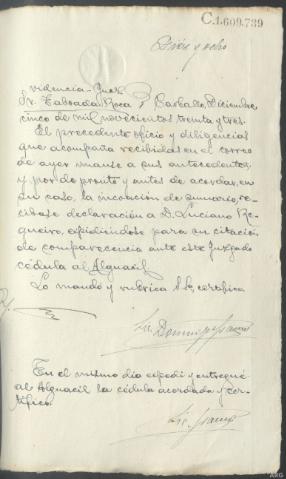 C.1.609.739
Diez y ocho
videncia-Juez
Sr. Taboada Roca Carballo, Diciembre
cinco de mil novecientos treinta y tres.
El precedente oficio y diligencias
que acompaña recibidas en el correo
de ayer unanse a sus antecedentes,
y por de pronto y antes de acordar, en
su caso, la incoación de sumario, re-
cibase declaración a D. Luciano Re-
gueiro, expidiendose para su citación
de comparecencia ante este Juzgado
cédula al Alguacil
Lo mando y rubrica S.S. certifico
Lic.
En el mismo dia expedi y entregué
al Alguacil la cédula acordada y cer-
tifico
Lic.
ARG